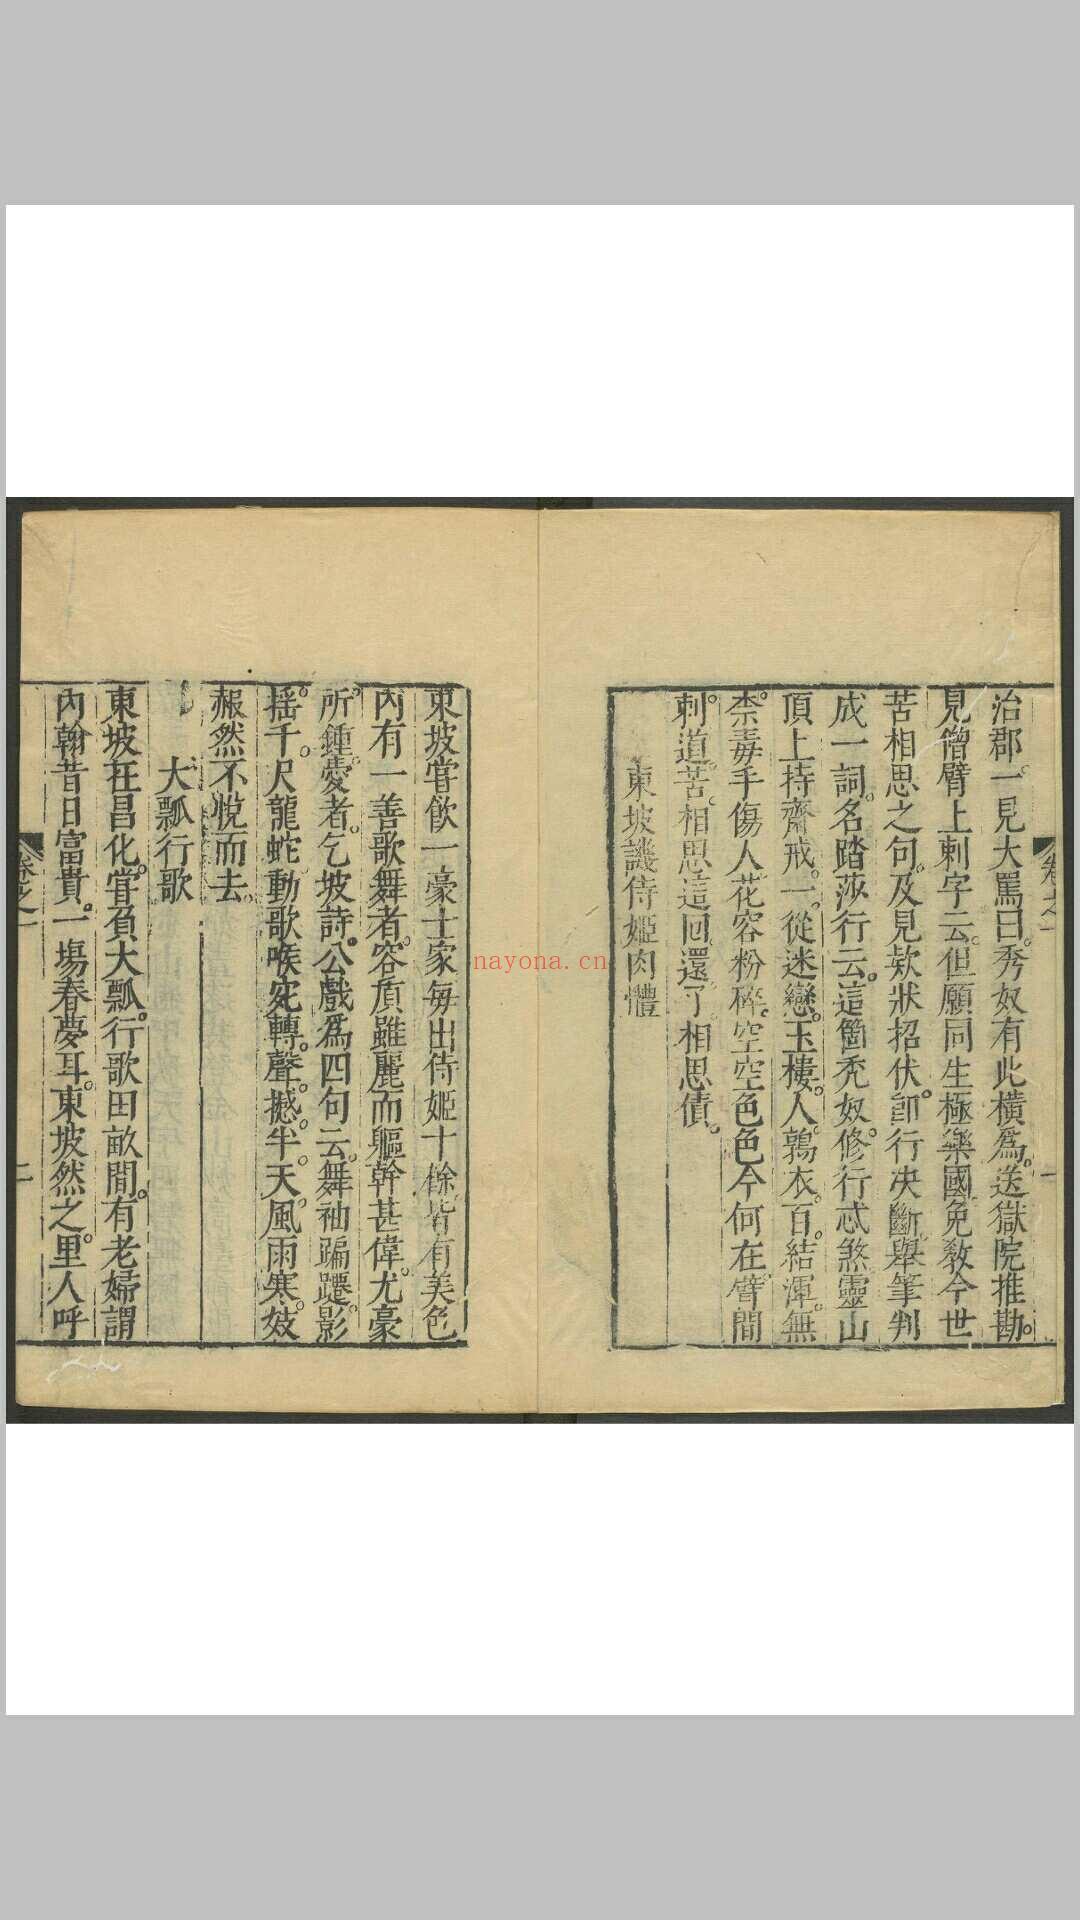 卷之一
一
治郡。一見大罵曰。秀奴有此橫爲。送獄院推勘。
見僧臂上刺字云。但願同生極樂國免敎今世
苦相思之句。及見欵狀招伏。卽行決斷舉筆判
成一詞。名踏莎行云。這箇禿奴。修行忒煞靈山
頂上持齋戒。一從迷戀。玉樓。人鶉衣。百。結渾。無
柰。毒手傷人花容粉碎。空空色色今何在臂間
刺。道。苦。相思。這回還了相思債。
東坡譏侍姬肉體
東坡嘗飮一豪士家每出侍姬十餘皆有美色
內有一善歌舞者。容質雖麗而軀幹甚偉。尤豪
所。鍾。愛者。乞坡詩。公戲爲四句云。舞袖蹁躚。影
搖。千。尺龍蛇。動歌喉宛轉。聲。撼。半。天。風雨寒。妓
赧然不悅而去。
大瓢行歌
東坡在昌化。嘗負大瓢。行歌田畝間。有老婦謂
內翰昔日富貴。一場春夢耳。東坡然之。里人呼
卷之一
二
nayona.cn